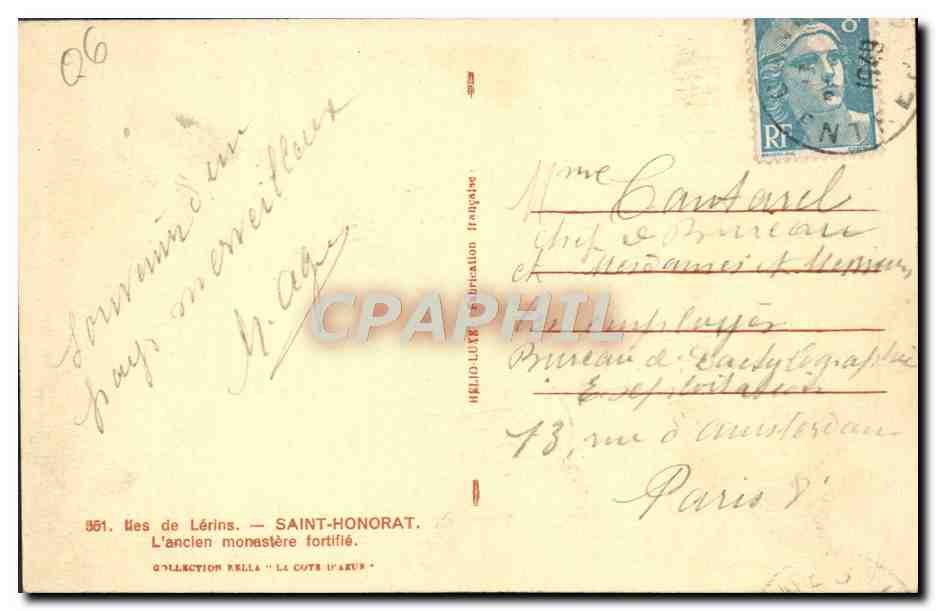 06
Souvenir d'un
pays merveilleux
351. Iles de Lérins. — SAINT-HONORAT.
L'ancien monastère fortifié.
COLLECTION RELLA "LA COTE D'AZUR"
HÉLIO-LUXE Fabrication française
CPAPHIL
RF
1949
Mme Cantarel
Chef de Bureau
et Mesdames et Messieurs
les employés
Bureau de Dactylographie
Exploitation
13, rue d'Amsterdam
Paris 8e